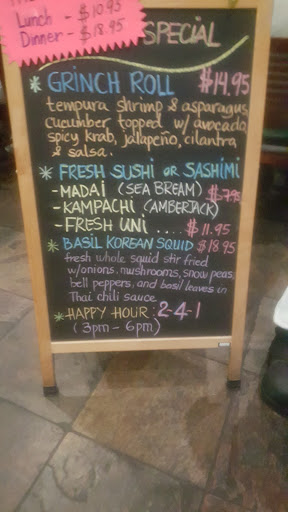 Lunch - $10.95
Dinner - $18.95
SPECIAL
* GRINCH ROLL $14.95
tempura shrimp & asparagus
cucumber topped w/ avocado
spicy krab, jalapeño, cilantro
& salsa.
* FRESH SUSHI OR SASHIMI
- MADAI (SEA BREAM) $7.95
- KAMPACHI (AMBERJACK)
- FRESH UNI .... $11.95
* BASIL KOREAN SQUID $18.95
fresh whole squid stir fried
w/onions, mushrooms, snow peas
bell peppers, and basil leaves in
Thai chili sauce
* HAPPY HOUR : 2-4-1
(3pm - 6pm)